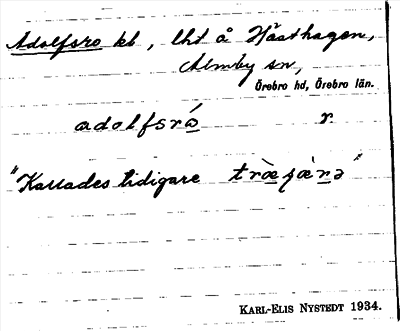 Adolfsro kl, lht å Hästhagen,
Almby sn,
Örebro hd, Örebro län.
adolfsró r
"Kallades tidigare
KARL-ELIS NYSTEDT 1934.